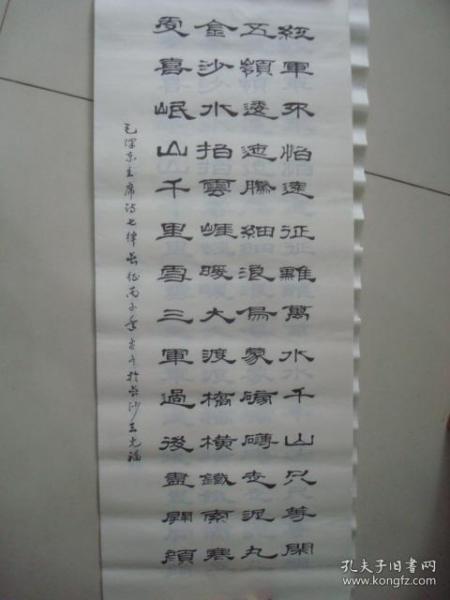 紅軍不怕遠征難萬水千山只等閑
五嶺逶迤騰細浪烏蒙磅礴走泥丸
金沙水拍雲崖暖大渡橋橫鐵索寒
更喜岷山千里雪三軍過後盡開顏
毛澤東主席詩七律長征丙子季於長沙王光福
孔夫子旧书网
www.kongfz.com